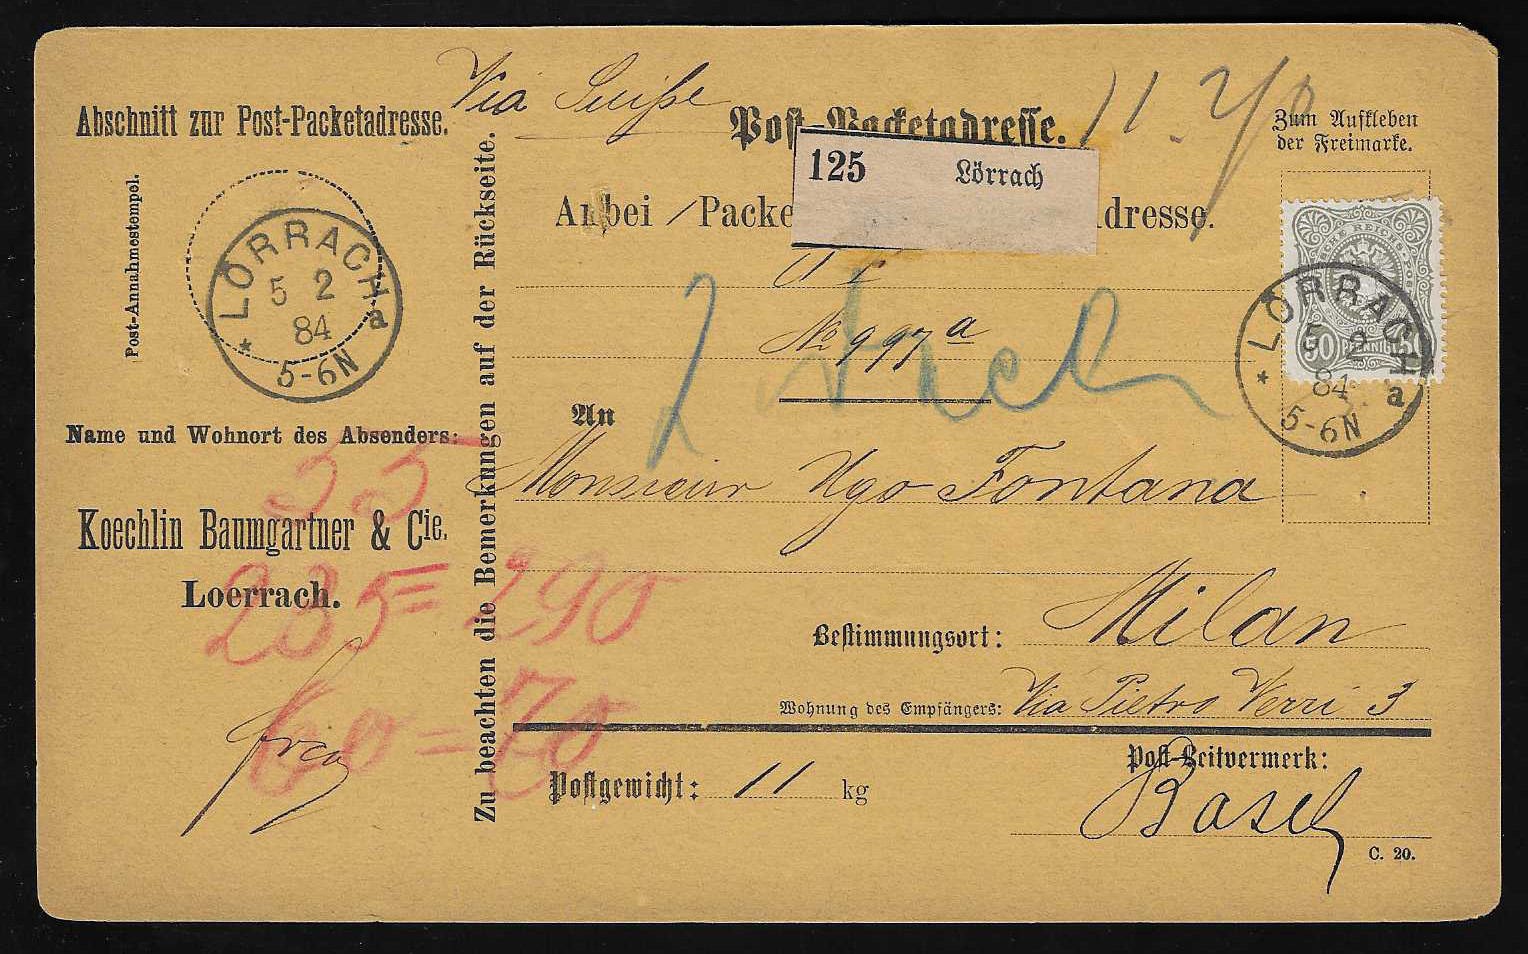 Via Suisse
Abschnitt zur Post-Packetadresse.
Post-Packetadresse.
11.
Zum Aufkleben
der Freimarke.
125 Lörrach
Anbei / Packe dresse.
Post-Annahmestempel.
LÖRRACH
5 2
84
a
* 5-6N
Zu beachten die Bemerkungen auf der Rückseite.
REICHS
50 PFENNIG 50
LÖRRACH
5 2
84
a
* 5-6N
No 997a
An
Name und Wohnort des Absenders:
55
Monsieur Ugo Fontana
Koechlin Baumgartner & Cie.
Loerrach.
285 = 290
Bestimmungsort: Milan
Wohnung des Empfängers: Via Pietro Verri 3
frco
60 = 70
Postgewicht: 11 kg
Post-Leitvermerk:
Basel
C. 20.